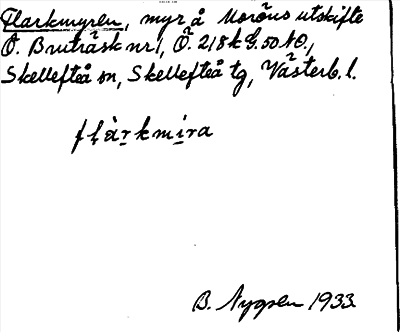 Flarkmyren, myr å Moröns utskifte
Ö. Bruträsk nr 1, Ö. 218 k G. 50 NO.,
Skellefteå sn, Skellefteå tg, Västerb. l.
flàrkmira
B. Nygren 1933